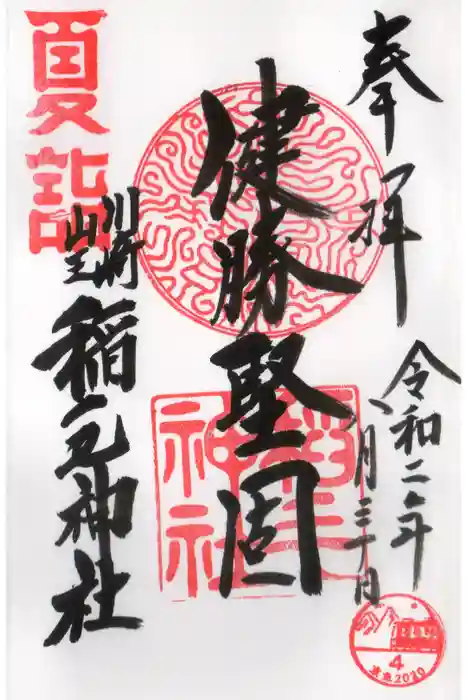 奉拝
令和二年
八月三十日
健勝堅固
夏詣
川崎
山王
稲毛神社
神社
4
2020